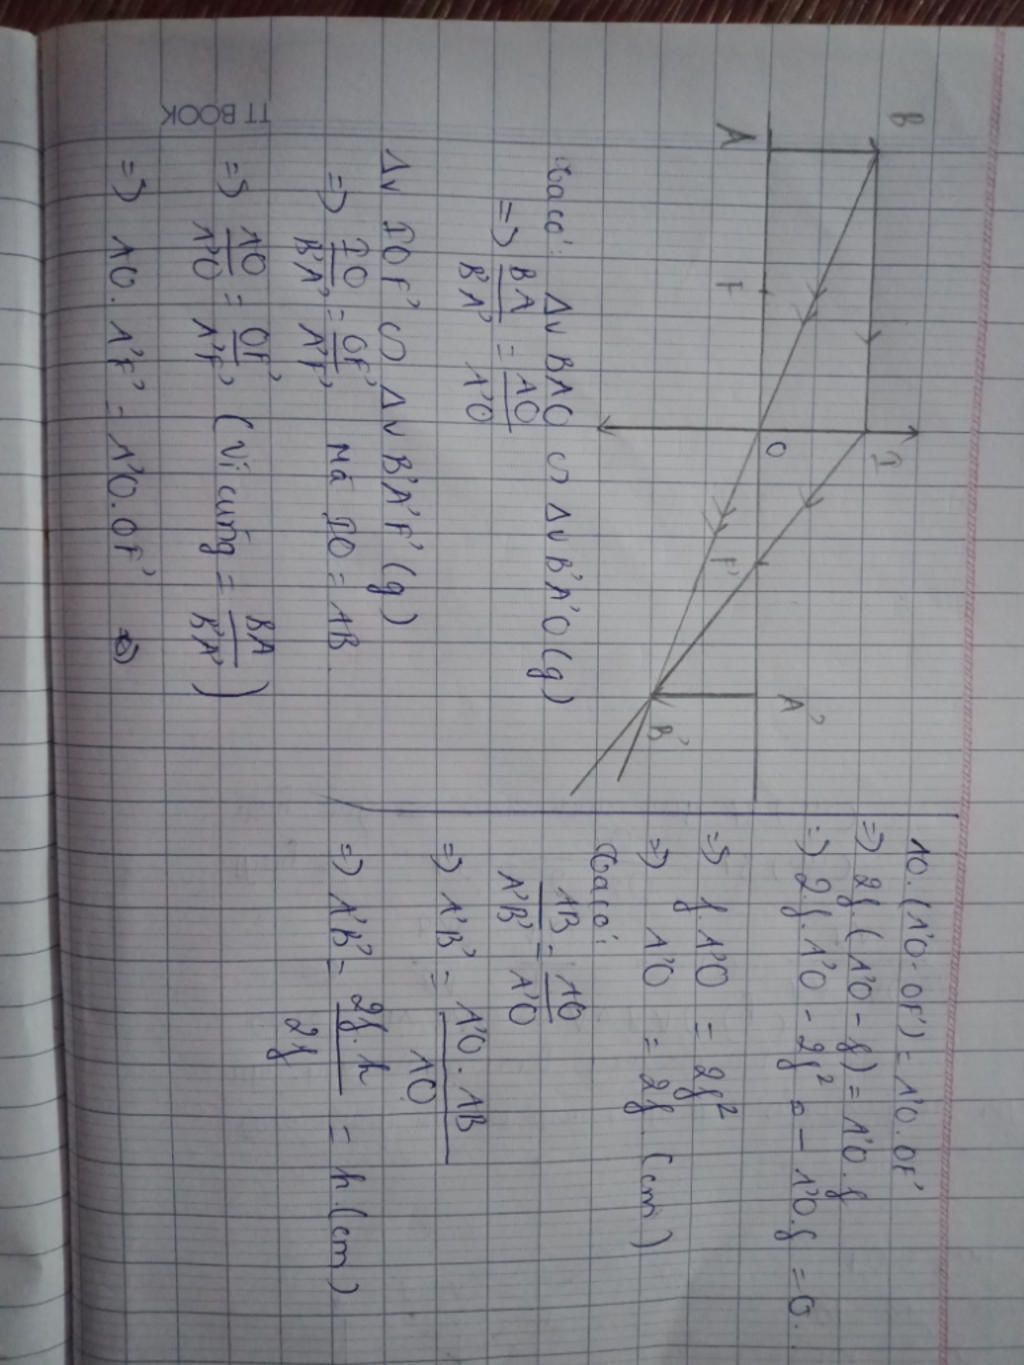 B
I
A
F
O
F'
A'
B'
Ta có: Δv BAO ∽ Δv B'A'O (g)
=> BA/B'A' = AO/A'O
Δv IOF' ∽ Δv B'A'F' (g)
=> IO/B'A' = OF'/A'F' mà IO = AB.
=> AO/A'O = OF'/A'F' (Vì cùng = BA/B'A')
=> AO. A'F' = A'O. OF'
AO. (A'O - OF') = A'O. OF'
=> 2f. (A'O - f) = A'O. f
=> 2f. A'O - 2f² - A'O. f = 0.
=> f. A'O = 2f²
=> A'O = 2f. (cm)
Ta có:
AB/A'B' = AO/A'O
=> A'B' = A'O. AB/AO
=> A'B' = 2f. h/2f = h. (cm)
TT BOOK